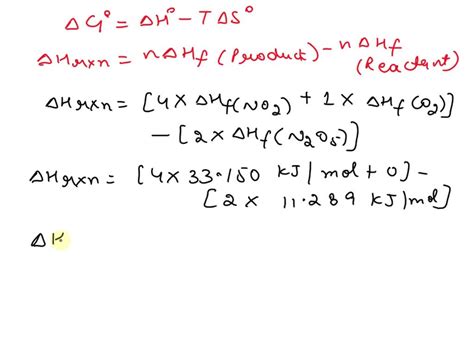 ΔG° = ΔH° - TΔS°
ΔHrxn = nΔHf (Product) - nΔHf (Reactant)
ΔHrxn = [4 × ΔHf(NO2) + 1 × ΔHf(O2)]
- [2 × ΔHf(N2O5)]
ΔHrxn = [4 × 33.150 KJ/mol + 0] -
[2 × 11.289 KJ/mol]
ΔH